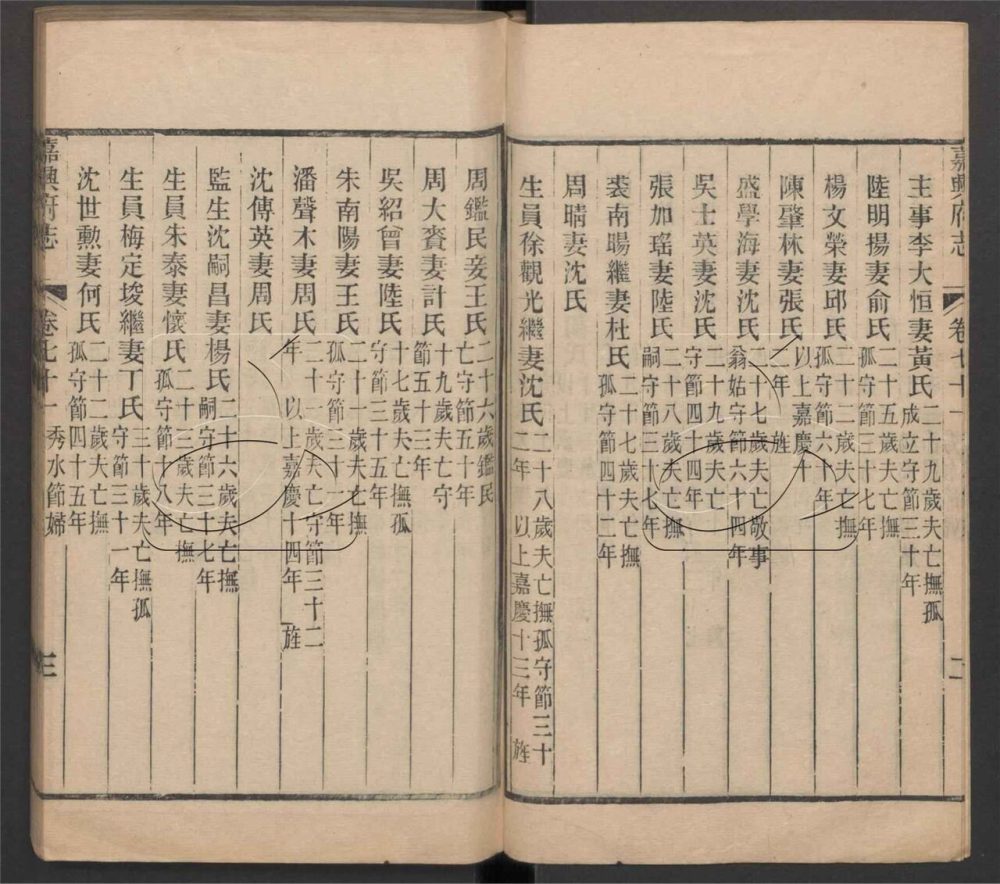 嘉興府志 卷七十一 二
主事李大恒妻黃氏二十九歲夫亡撫孤成立守節三十年
陸明揚妻俞氏二十五歲夫亡撫孤守節三十七年
楊文榮妻邱氏二十二歲夫亡撫孤守節六十年
陳肇林妻張氏以上嘉慶十二年 旌
盛學海妻沈氏二十七歲夫亡敬事翁姑守節六十四年
吳士英妻沈氏二十九歲夫亡守節四十四年
張加瑤妻陸氏二十八歲夫亡撫嗣守節三十七年
裘南暘繼妻杜氏二十七歲夫亡撫孤守節四十二年
周晴妻沈氏
生員徐觀光繼妻沈氏二十八歲夫亡撫孤守節三十二年 以上嘉慶十三年 旌
周鑑民妾王氏二十六歲鑑民亡守節五十年
周大賚妻計氏十九歲夫亡守節五十三年
吳紹曾妻陸氏十七歲夫亡撫孤守節三十五年
朱南陽妻王氏二十一歲夫亡撫孤守節三十一年
潘聲木妻周氏二十一歲夫亡守節三十二年 以上嘉慶十四年 旌
沈傳英妻周氏
監生沈嗣昌妻楊氏二十六歲夫亡撫嗣守節三十七年
生員朱泰妻懷氏二十三歲夫亡撫孤守節十八年
生員梅定埈繼妻丁氏三十歲夫亡撫孤守節三十一年
沈世勳妻何氏二十二歲夫亡撫孤守節四十五年
嘉興府志 卷七十一 秀水節婦 三